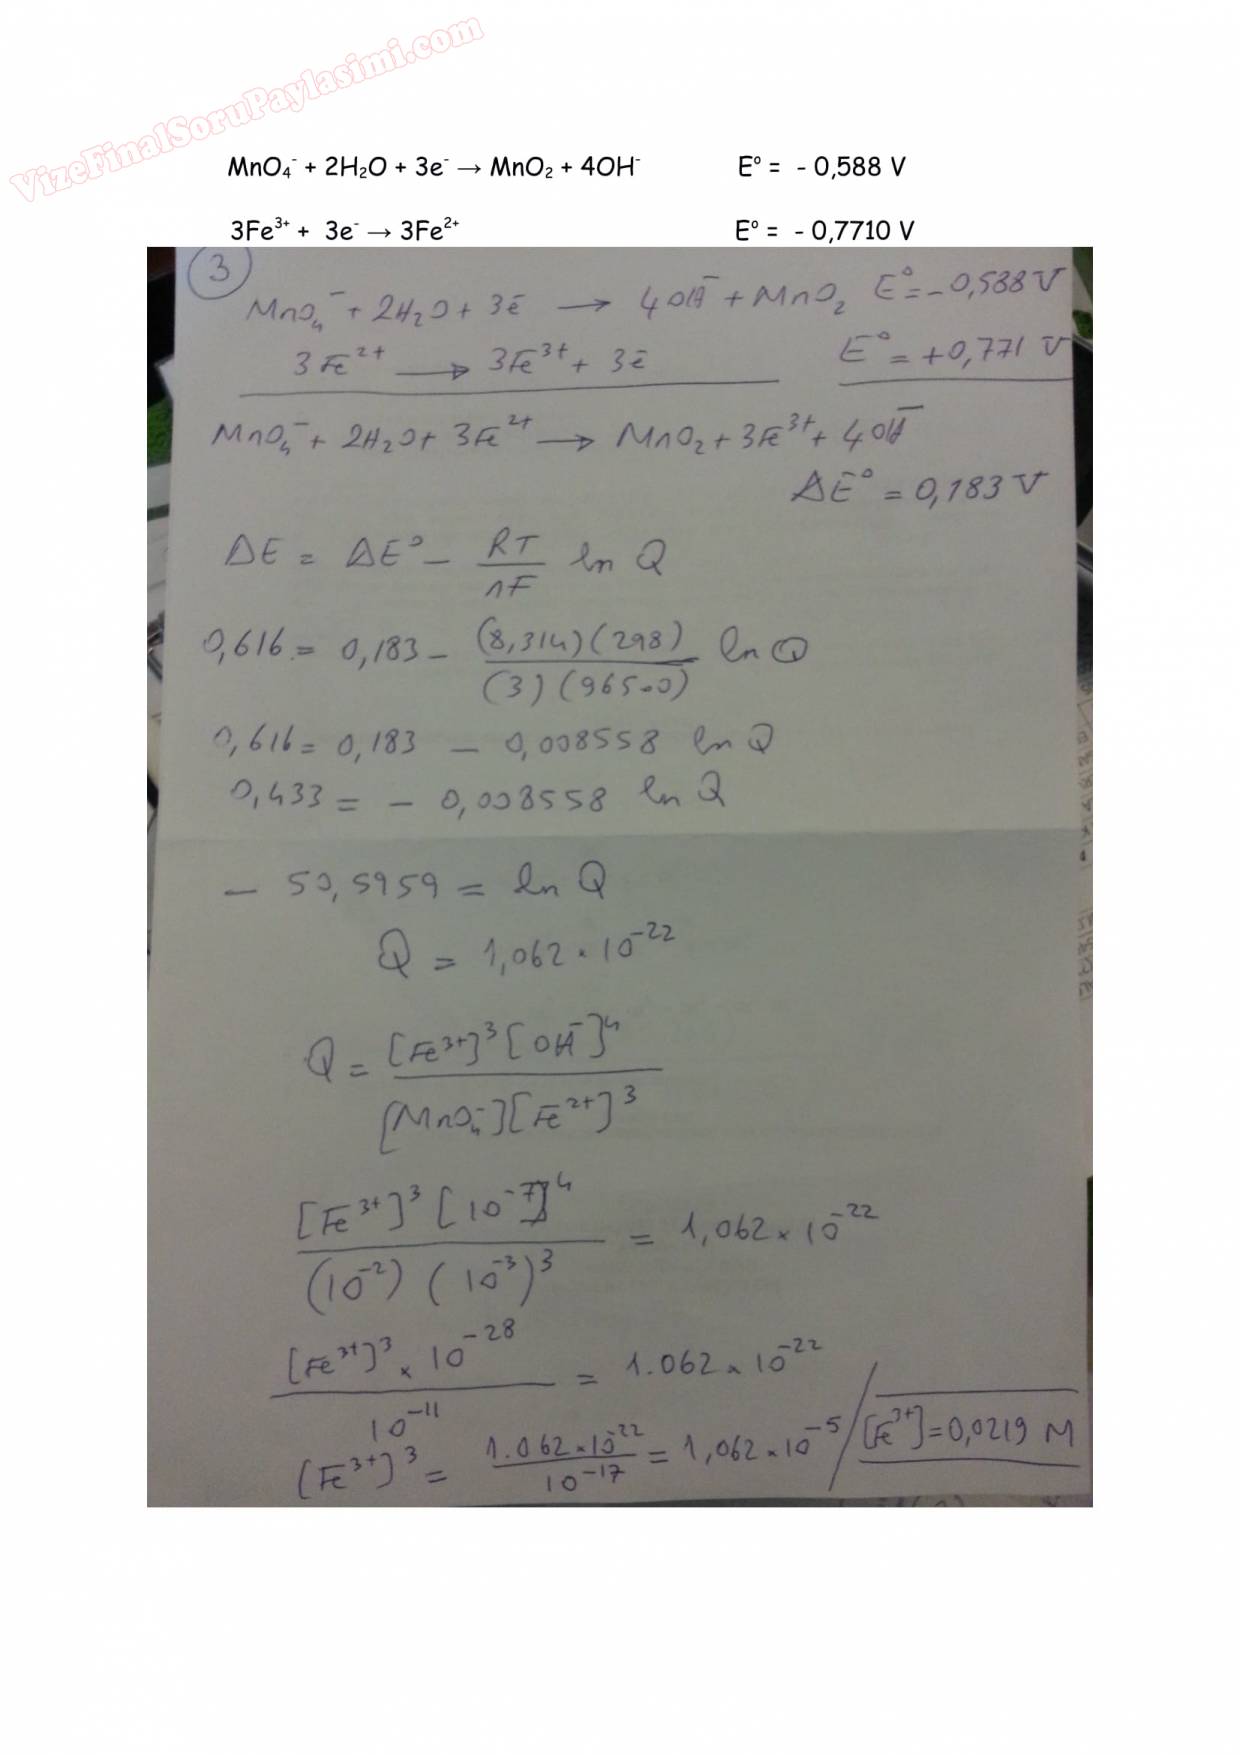 VizeFinalSoruPaylasimi.com
MnO₄⁻ + 2H₂O + 3e⁻ → MnO₂ + 4OH⁻ E° = - 0,588 V
3Fe³⁺ + 3e⁻ → 3Fe²⁺ E° = - 0,7710 V
3
MnO₄⁻ + 2H₂O + 3ē → 4OH⁻ + MnO₂ E° = -0,588 V
3Fe²⁺ → 3Fe³⁺ + 3ē E° = +0,771 V
MnO₄⁻ + 2H₂O + 3Fe²⁺ → MnO₂ + 3Fe³⁺ + 4OH⁻
ΔE° = 0,183 V
ΔE = ΔE° - RT/nF ln Q
0,616 = 0,183 - (8,314)(298)/(3)(96500) ln Q
0,616 = 0,183 - 0,008558 ln Q
0,433 = - 0,008558 ln Q
- 50,5959 = ln Q
Q = 1,062 × 10⁻²²
Q = [Fe³⁺]³[OH⁻]⁴/[MnO₄⁻][Fe²⁺]³
[Fe³⁺]³[10⁻⁷]⁴/(10⁻²)(10⁻³)³ = 1,062 × 10⁻²²
[Fe³⁺]³ × 10⁻²⁸/10⁻¹¹ = 1.062 × 10⁻²²
[Fe³⁺]³ = 1.062 × 10⁻²²/10⁻¹⁷ = 1,062 × 10⁻⁵ / [Fe³⁺] = 0,0219 M